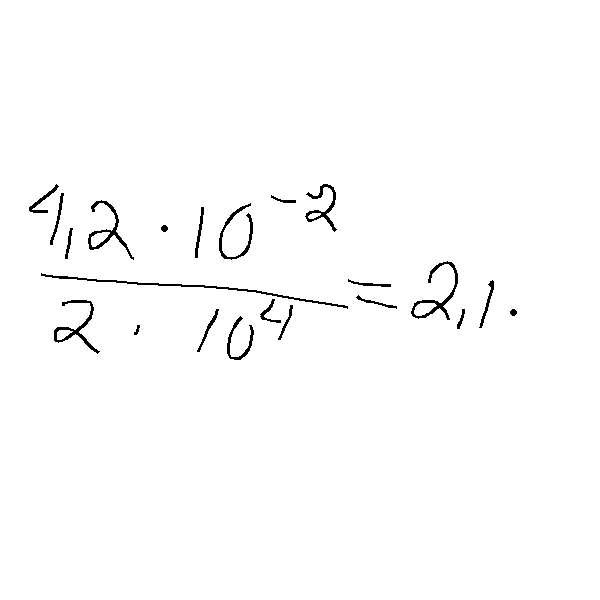 \frac{4,2 \cdot 10^{-2}}{2 \cdot 10^{4}} = 2,1 \cdot